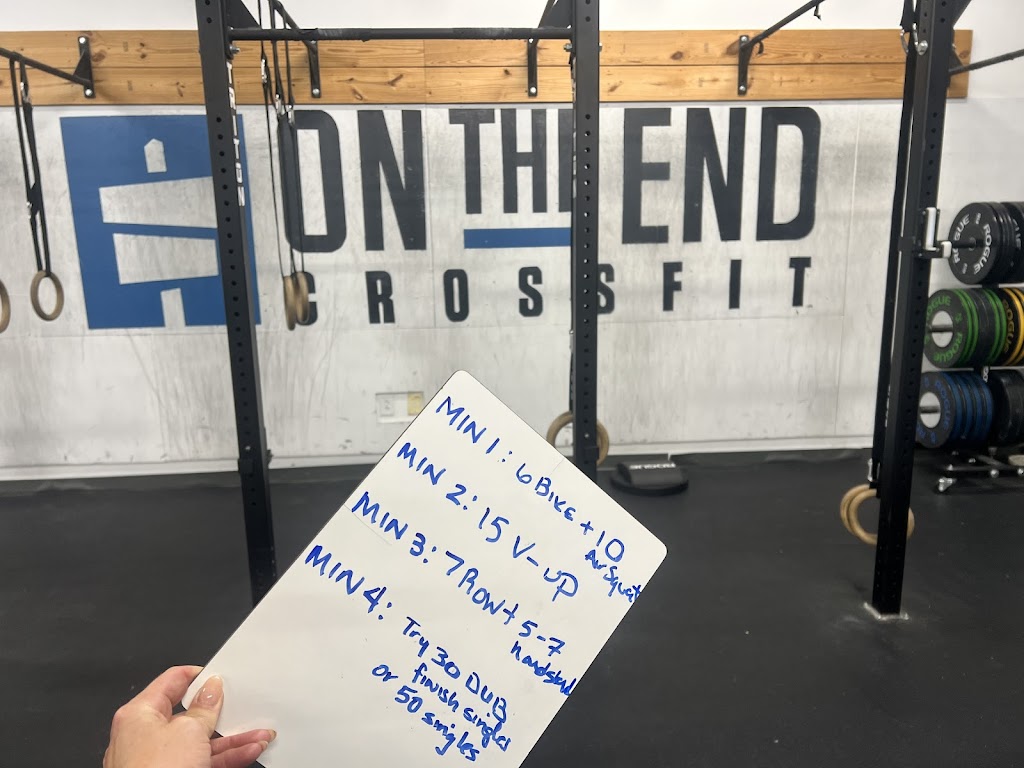 ON THE END
CROSSFIT
ROGUE
ROGUE
ROGUE
ROGUE
ROGUE
OGUE
ROGUE
MIN 1: 6 BIKE + 10
Air Squat
MIN 2: 15 V-UP
MIN 3: 7 ROW + 5-7
handstand
MIN 4: Try 30 DUB
finish singles
or 50 singles